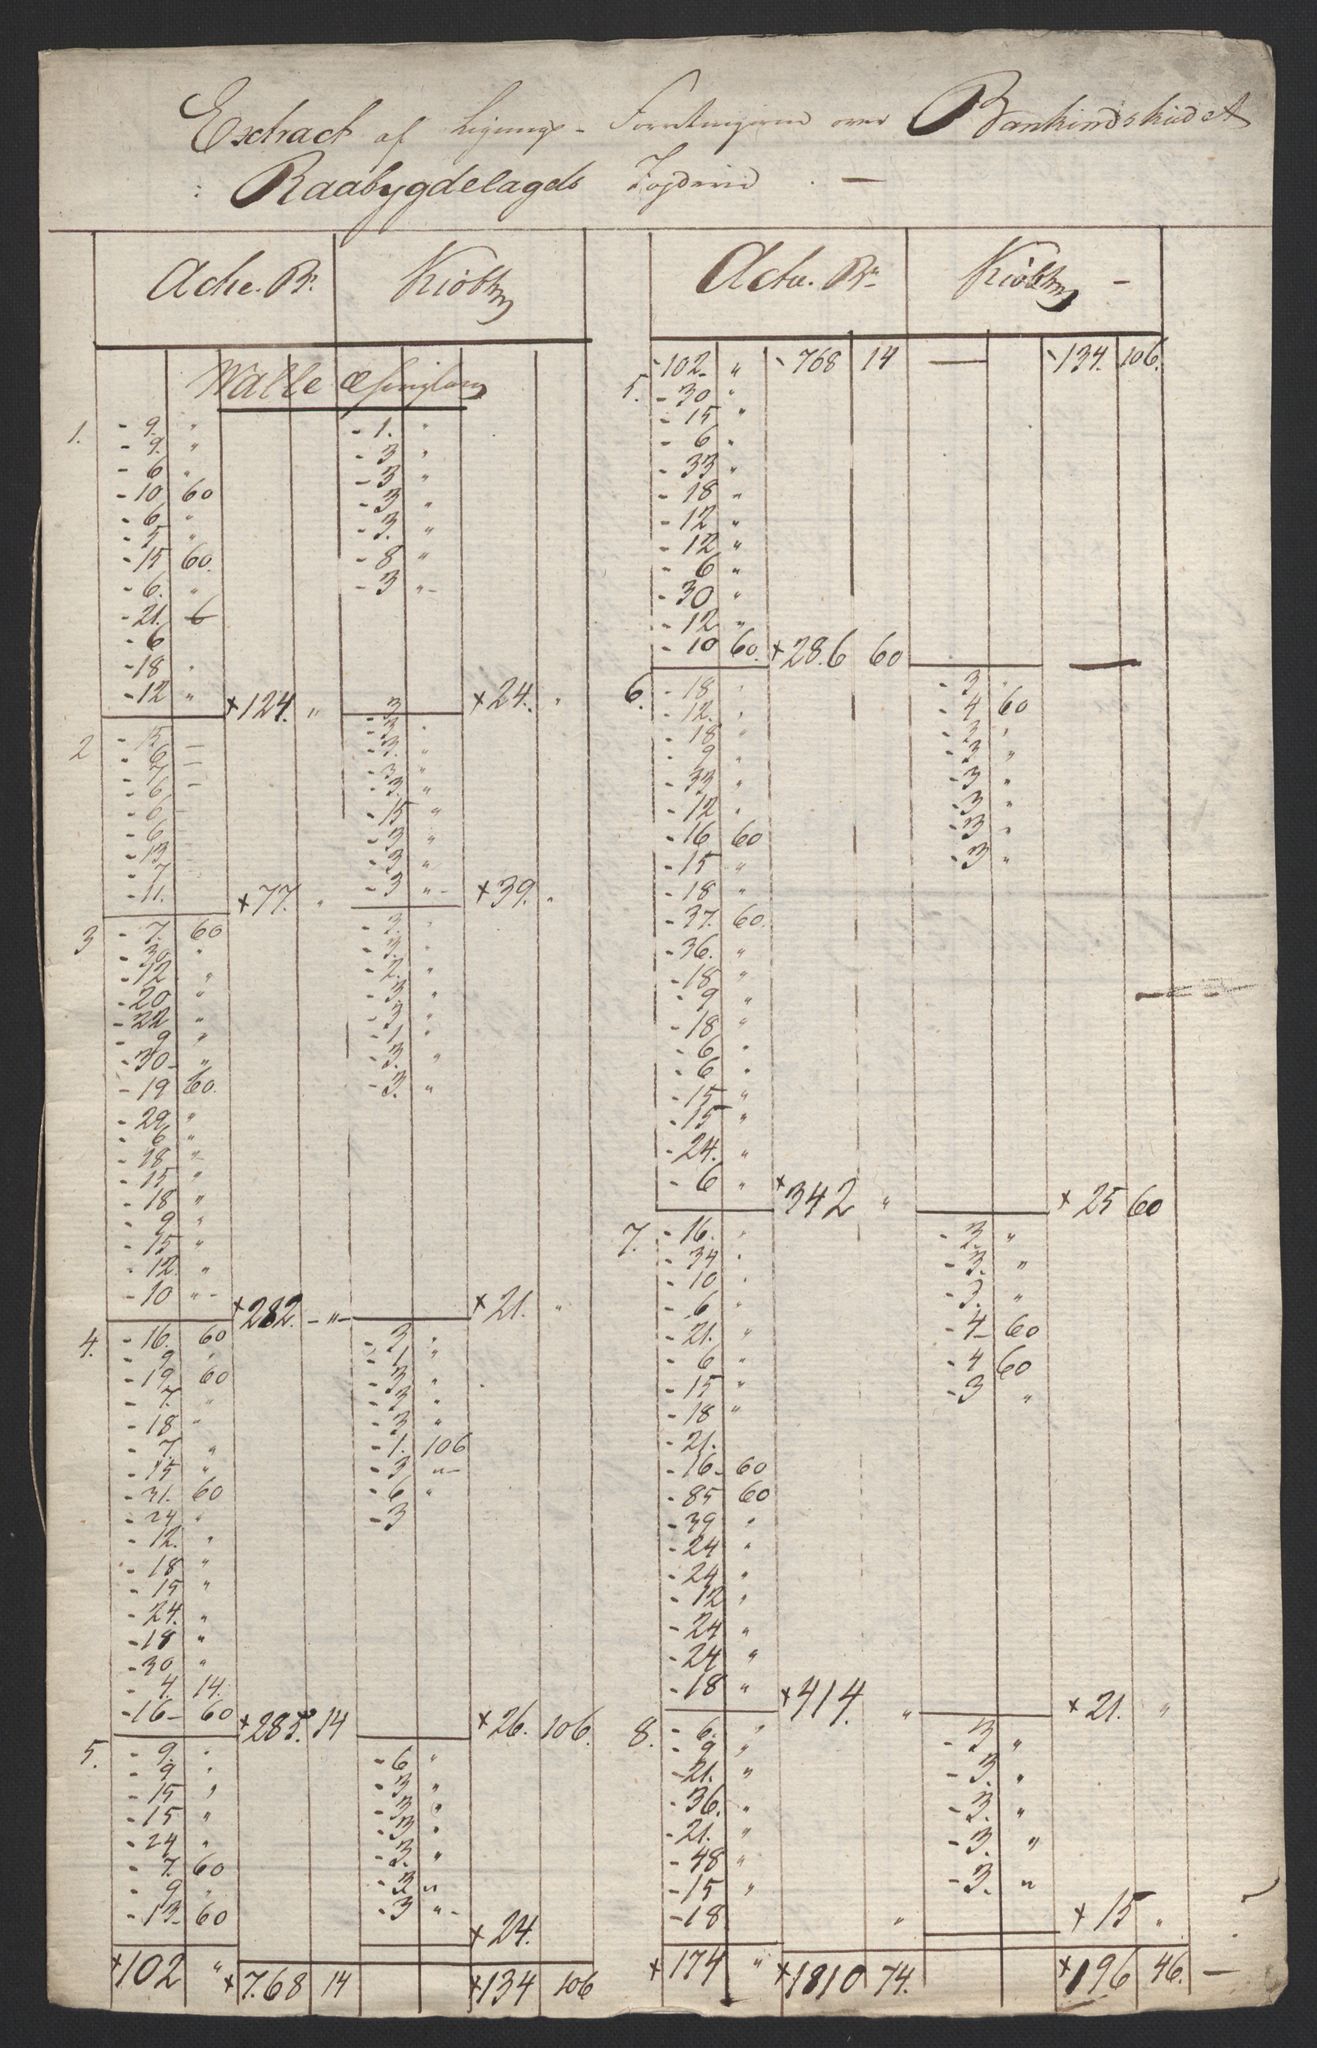 Extract af Lignings-Forretningerne over Bankindskudet
i Raabygdelagets Fogderie. —
Actie. Br. Kiøbt Actie. Br. Kiøbt —
Walle
-102 „ -768 14 — -134. 106.
5. -30 „
-15 „
1. -9. „ -1. „ -6 „
-9. „ -3 „ -33 „
-6 „ -3 „ -18 „
-10 60 -3 „ -12 „
-6 „ -3. „ -12 „
-5 „ -8 „ -6 „
-15 60. -3 „- -30 „
-6. „ -12 „
-21. 6 -10 60. +286 60 —
-6
-18 „
-12 „ +124. „ +24. „
6. -18 „ -3 „
-12. „ -4 60
-18 „ -3 „
-9 „ -3 „
-33 „ -3 „
-12 „ -3 „
-16 60 -3 „
-15 „ -3 „
-18 „
-37. 60.
-36. „
-18 „
-9 „
-18 „
-6 „
-6 „
-15 „
-15 „
-24. „
-6 „ +342 „ +25 60
2 -15 — -3 „
-6 — -3. „
-7 — -3 „
-6 -3. „
-6 -15 „
-6 -3 „
-13 -3 „
-7 -3 „-
-11. +77. „ +39. „
3 -7. 60 -3. „
-30 „ -3. „
-12 „ -2. „
-20 „ -3 „
-22 „ -3 „
-9 „ -1. „
-30- „ -3. „
-19 60. -3. „
-29 „
-6 „
-18 „
-15 „
-18 „
-9 „
-15 „
-12. „
-10 „- +282. -„- +21. „
7. -16. „ -3. „
-34 „ -3. „
-10 „ -3. „
-6 „ -4- 60
-21. „ -4 60
-6 „ -3 „
-15 „
-18 „
-21.
-16- 60
-85 60
-39 „
-24 „
-24 „
-12 „
-24 „
-24 „
-18 „ +414. „ +21. „
4. -16. 60 -3 „
-9 „ -1 „
-19 60 -3 „
-7. „ -3 „
-18 „ -3 „
-7. „ -1. 106
-15 „ -3 „-
-31. 60 -6 „
-24 „ -3
-12. „
-18 „
-15 „
-24. „
-18 „
-30 „
-4. 14.
-16- 60 +285. 14 +26. 106.
8. -6. „ -3 „
-9 „ -3. „
-21. „ -3. „
-36. „ -3. „
-21. „ -3. „
-48 „
-15 „
-18 „ +15 „
5. -9. „ -6 „
-9 „ -3 „
-15 „ -3 „
-15 „ -3 „
-24 „ -3. „
-7. 60 -3 „
-9 „ -3 „-
-13- 60 +24.
+102 „ +768 14 +134 106 +174 „ +1810 74. +196 46. —